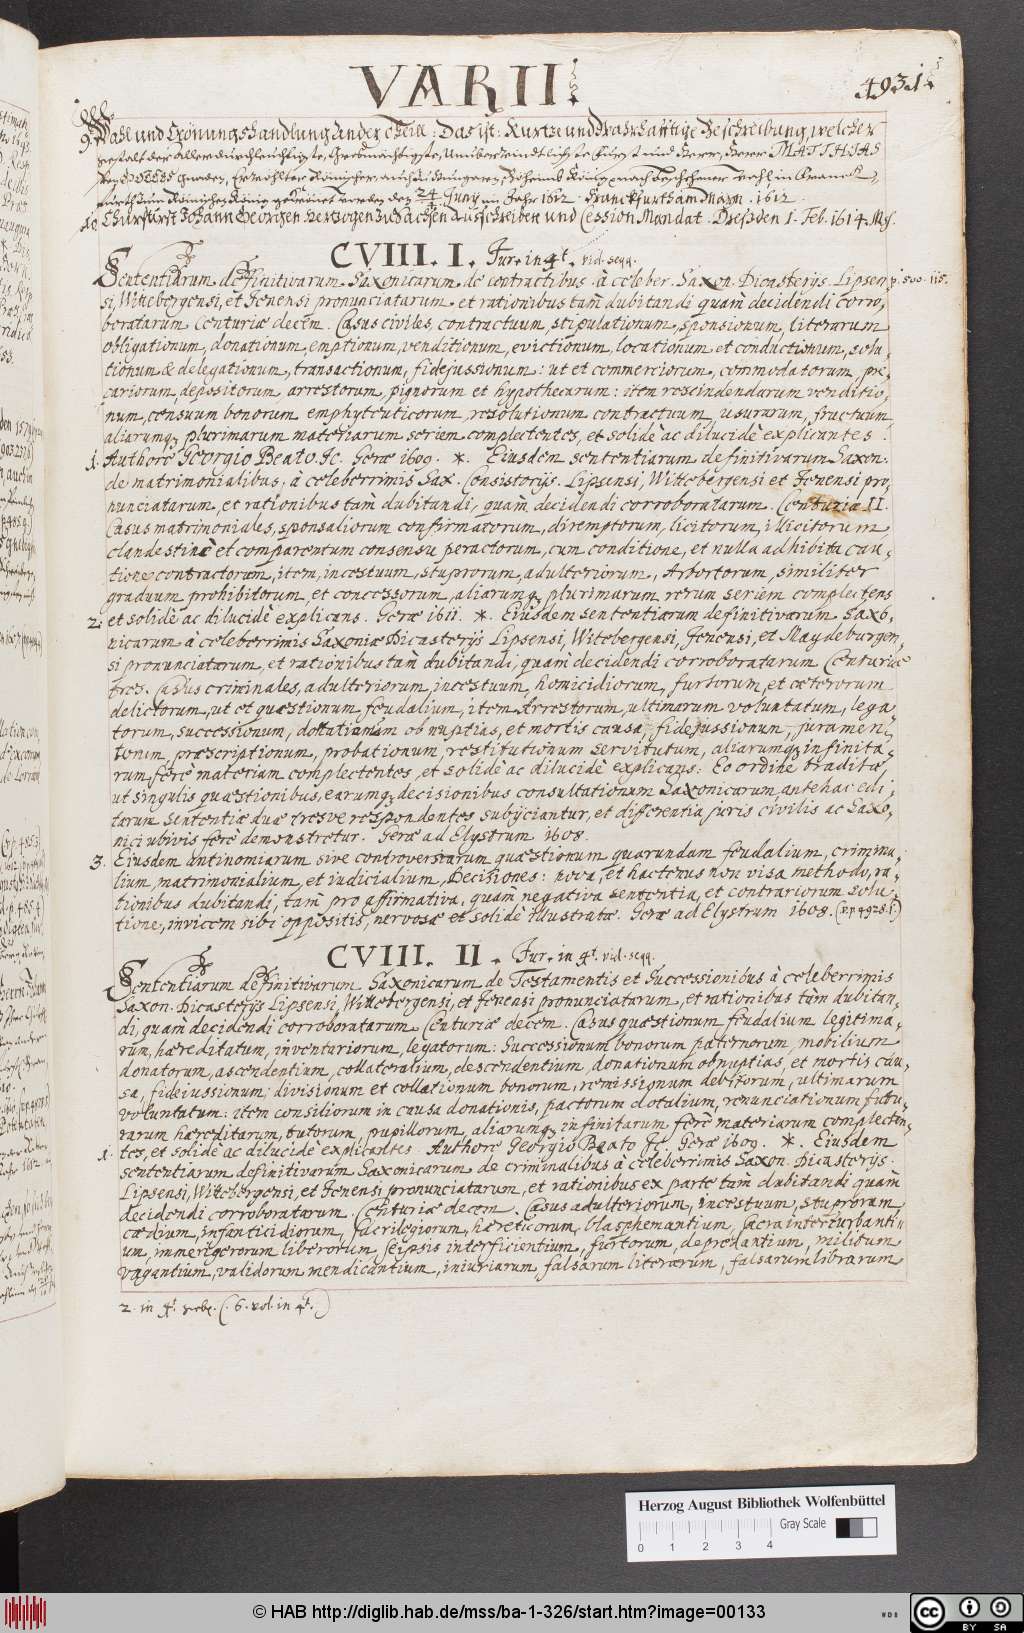 VARII
4931
9. Wahl und Crönungshandlung ander Theill: Das ist: Kurtze und Wahrhafftige Beschreibung, welcher
gestalt der Allerdurchleuchtigste, Großmächtigste, Unüberwindtlichste Fürst und Herr, Herr MATTHIAS
erwöhlter Römischer, auch zu Hungern, Böheim König nach beschehener Wahl, in
Römischen König gecrönet worden den 24/14 Juny im Jahr 1612. Franckfurth am Mayn. 1612.
10. Churfürst Johann Georgen Hertzogen zu Sachsen Ausschreiben und Cession Mandat. Dreßden 1. Feb. 1614. Ms.
CVIII. I. Jur. in 4t. vid. seqq.
Sententiarum definitivarum Saxonicarum de contractibus à celeber. Saxon. Dicasterijs. Lipsen- p. 500. 115.
si, Wittebergensi, et Jenensi pronunciatarum et rationibus tam dubitandi quam decidendi corro-
boratarum Centuriæ decem. Casus civiles, contractuum, stipulationum, sponsionum, literarum
obligationum, donationum, emptionum, venditionum, evictionum, locationum et conductionum, solu-
tionum & delegationum, transactionum, fidejussionum: ut et commerciorum, commodatorum, pre-
cariorum, depositorum, arrestorum, pignorum et hypothecarum: item rescindendarum venditio-
num, censuum bonorum emphyteuticorum, resolutionum contractuum, usurarum, fructuum
aliarumq3 plurimarum materiarum seriem complectentes, et solidè ac dilucidè explicantes:
1. Authore Georgio Beato Jc. Geræ 1609. *. Eiusdem sententiarum definitivarum Saxon.
de matrimonialibus, à celeberrimis Sax. Consistorijs. Lipsensi, Wittebergensi et Jenensi pro-
nunciatarum, et rationibus tàm dubitandi, quàm decidendi corroboratarum. Centuriæ II.
Casus matrimoniales, sponsaliorum confirmatorum, diremptorum, licitorum, illicitorum
clandestinè et comparentum consensu peractorum, cum conditione, et nulla adhibita cau-
tione contractorum, item, incestuum, stuprorum, adulteriorum, Arbortorum, similiter
graduum prohibitorum, et concessorum, aliarumq3 plurimarum rerum seriem complectens
2. et solidè ac dilucidè explicans. Geræ 1611. *. Eiusdem sententiarum definitivarum Saxo-
nicarum à celeberrimis Saxoniæ Dicasterijs Lipsensi, Witebergensi, Jenensi, et Maydeburgen-
si pronunciatarum, et rationibus tàm dubitandi, quàm decidendi corroboratarum Centuriæ
tres. Casus criminales, adulteriorum, incestuum, homicidiorum, furtorum, et cæterorum
delictorum, ut et quæstionum feudalium, item Arrestorum, ultimarum voluntatum, lega-
torum, successionum, ob nuptias, et mortis causa, fidejussionum, juramen-
torum, præscriptionum, probationum, restitutionum servitutum, aliarumq3 infinita-
rum, ferè materiam complectentes, et solidè ac dilucidè explicans: Eo ordine tradita,
ut singulis quæstionibus, earumq3 decisionibus consultationum Saxonicarum antehac edi-
tarum sententiæ duæ tresve respondentes subijciantur, et differentia juris civilis ac Saxo-
nici ubivis ferè demonstretur. Geræ ad Elystrum 1608.
3. Eiusdem antinomiarum sive controversarum quæstionum quarundam feudalium, crimina-
lium, matrimonialium, et iudicialium, Decisiones: nova, et hactenus non visa methodo, ra-
tionibus dubitandi, tam pro affirmativa, quàm negativa sententia, et contrariorum solu-
tione, invicem sibi oppositis, nervosæ et solidè illustratæ. Geræ ad Elystrum 1608. (pp 4928.f.)
CVIII. II. Jur. in 4t. vid. seqq.
Sententiarum definitivarum Saxonicarum de Testamentis et Successionibus à celeberrimis
Saxon. Dicasterijs Lipsensi, Wittebergensi, et Jenensi pronunciatarum, et rationibus tàm dubitan-
di, quàm decidendi corroboratarum Centuriæ decem. Casus quæstionum feudalium legitima-
rum, hæreditatum, inventariorum, legatorum: Successionum bonorum paternorum, mobilium
donatorum, ascendentium, collateralium, descendentium, donationum ob nuptias, et mortis cau-
sa, fideiussionum: divisionum et collationum bonorum, remissionum debitorum, ultimarum
voluntatum: item consiliorum in causa donationis, pactorum dotalium, renunciationum futu-
rarum hæreditarum, tutorum, pupillorum, aliarumq3 infinitarum ferè materiarum complecten-
1. tes, et solidè ac dilucidè explicantes. Authore Georgio Beato Jc. Geræ 1609. *. Eiusdem
sententiarum definitivarum Saxonicarum de criminalibus à celeberrimis Saxon. Dicasterijs.
Lipsensi, Witebergensi, et Jenensi pronunciatarum, et rationibus ex parte tàm dubitandi quàm
decidendi corroboratarum. Centuriæ decem. Casus adulteriorum, incestuum, stuprorum,
cædium, infanticidiorum, sacrilegiorum, hæreticorum, blasphemantium, sacra interturbanti-
um, immorigerorum liberorum, seipsis interficientium, furtorum, deprædantium, militum
vagantium, validorum mendicantium, iniuriarum, falsarum literarum, falsarum librarum
2. in 4t. (. 6. vol. in 4t.)
Herzog August Bibliothek Wolfenbüttel
Gray Scale
0 1 2 3 4
© HAB http://diglib.hab.de/mss/ba-1-326/start.htm?image=00133
WDB
cc BY SA